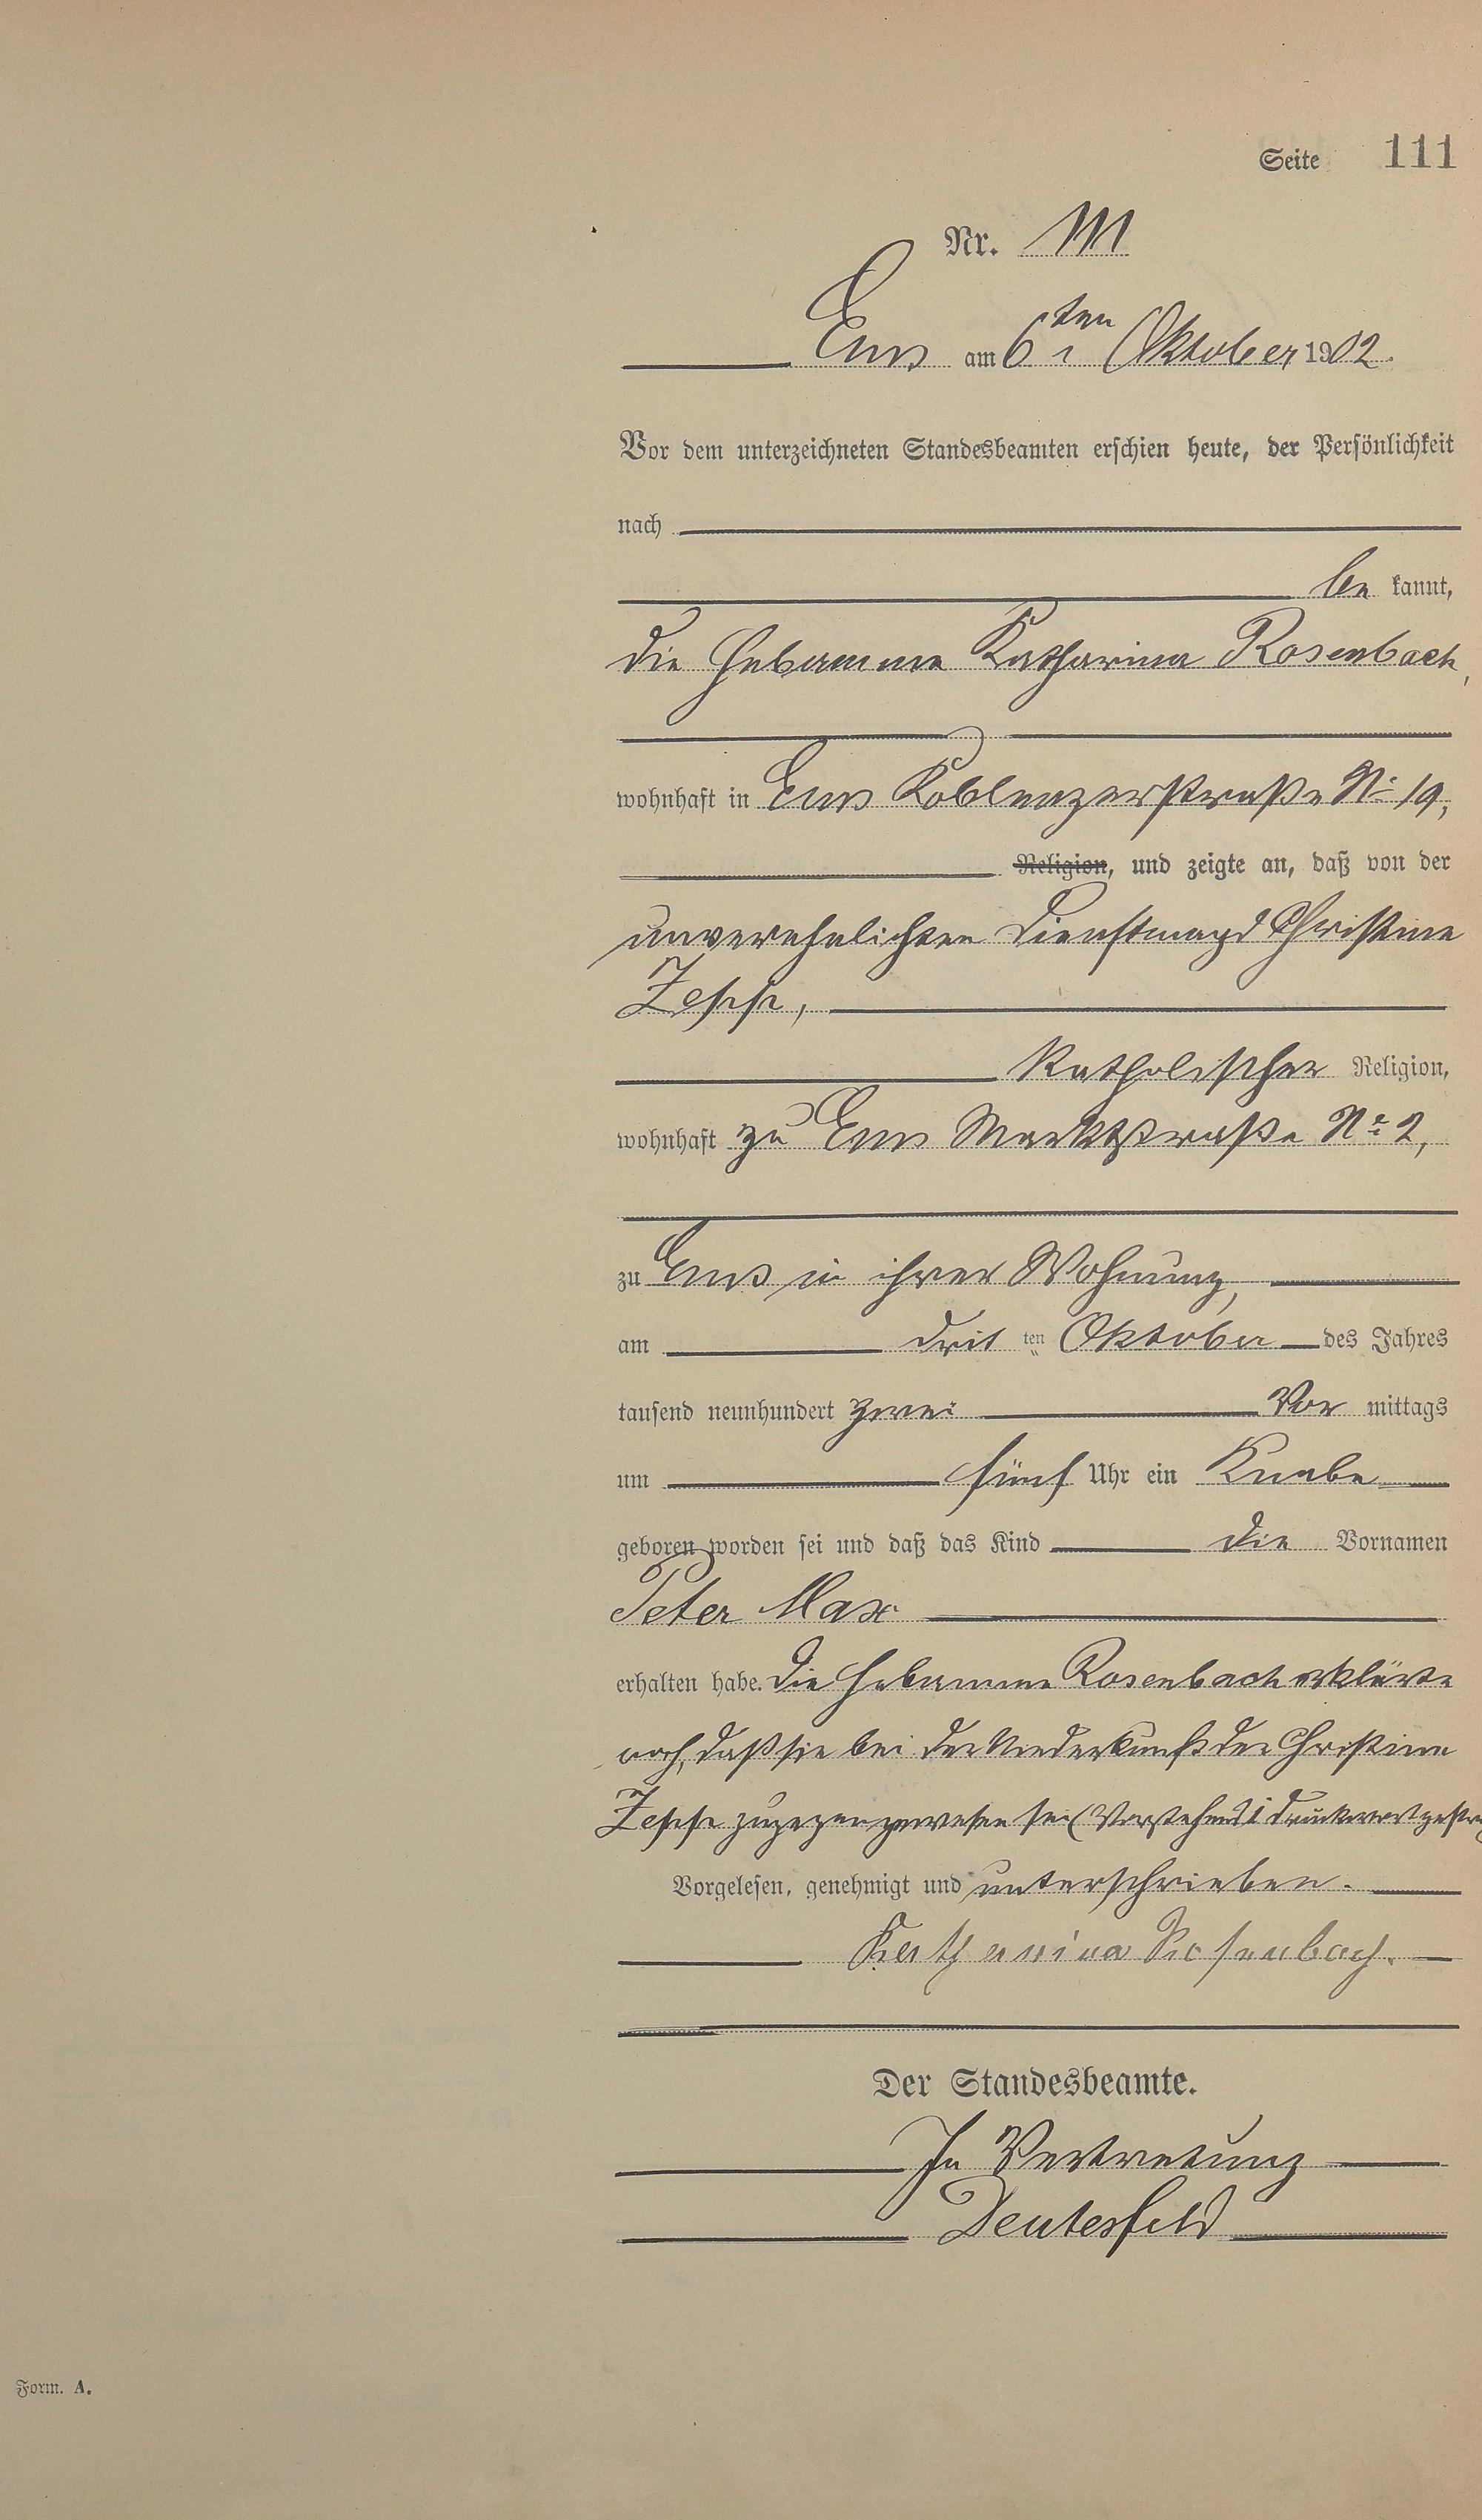 Seite 111
Nr. 111
Ems am 6ten Oktober 1902.
Vor dem unterzeichneten Standesbeamten erschien heute, der Persönlichkeit
nach
be kannt,
die Hebamme Katharina Rosenbach,
wohnhaft in Ems Koblenzerstraße No 19,
Religion, und zeigte an, daß von der
unverehelichten Dienstmagd Christine
katholischer Religion,
wohnhaft zu Ems Marktstraße No 2,
zu Ems in ihrer Wohnung,
am drit ten Oktober des Jahres
tausend neunhundert zwei Vor mittags
um fünf Uhr ein Knabe
geboren worden sei und daß das Kind die Vornamen
Peter Max
erhalten habe. Die Hebamme Rosenbach erklärte
noch, daß sie bei der Niederkunft der Christine
zugegen gewesen sei (Vorstehend 1 Druckwort
Vorgelesen, genehmigt und unterschrieben.
Katharina Rosenbach.
Der Standesbeamte.
In Vertretung
Deutesfeld
Form. A.